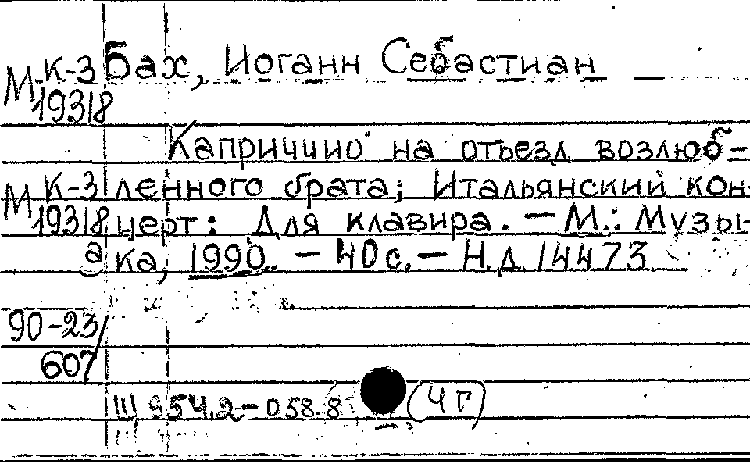 М К-3 Бах, Иоганн Себастиан
19318
Каприччио на отъезд возлюб=
М К-3 ленного брата; Итальянский кон-
19318 церт: Для клавира. — М.: Музы-
а ка, 1990. — 40 с. — Н.д. 14473
90-23/
607
Щ 954.2-058.8 (4г)